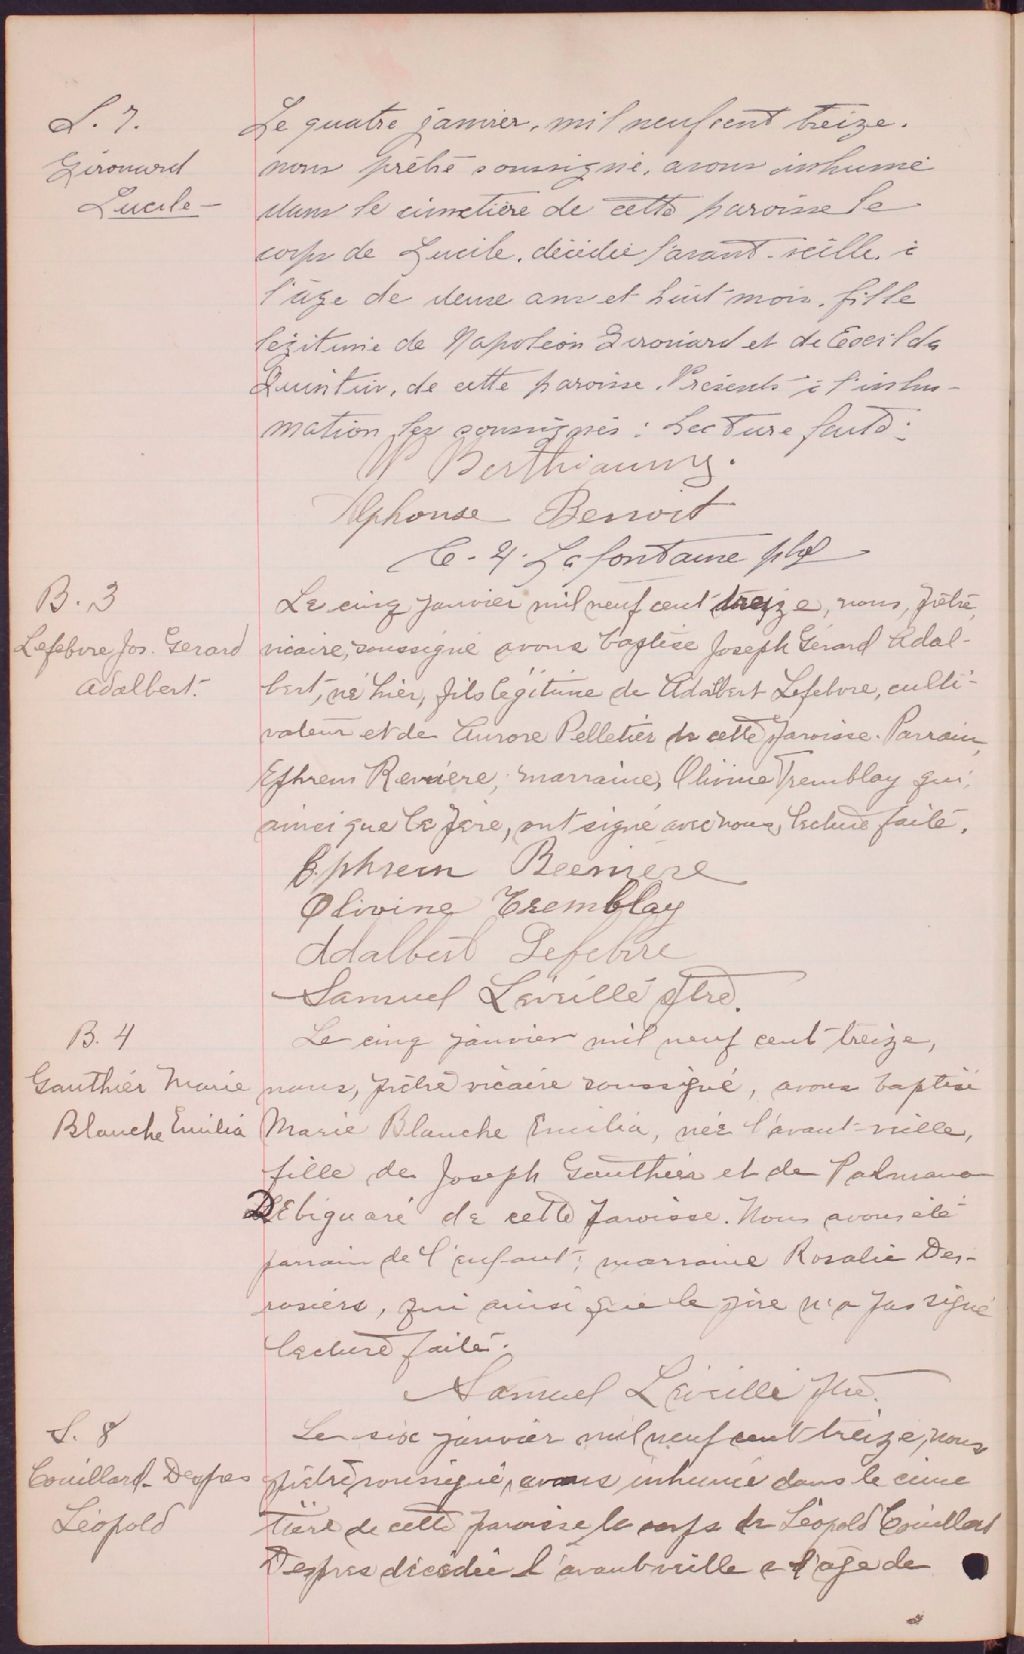 S. 7.
Girouard
Lucile -
Le quatre janvier, mil neuf cent treize.
nous prêtre soussigné, avons inhumé
dans le cimetière de cette paroisse le
corps de Lucile, décédée l'avant-veille, à
l'âge de deux ans et huit mois, fille
légitime de Napoléon Girouard et de Exilda
Quintin, de cette paroisse. Présents à l'inhu-
mation les soussignés : Lecture faite :
W Berthiaume.
Alphonse Benoit
C. Lafontaine ptre
B. 3
Lefebvre Jos. Gerard
Adalbert.
Le cinq janvier mil neuf cent treize, nous, prêtre,
vicaire, soussigné avons baptisé Joseph Gérard Adal-
bert, né hier, fils légitime de Adalbert Lefebvre, culti-
vateur et de Aurore Pelletier de cette paroisse. Parrain,
Ephrem ; marraine, Olivine Tremblay qui,
ainsi que le père, ont signé avec nous, lecture faite.
Ephrem
Olivine Tremblay
Adalbert Lefebvre
Samuel Léveillé ptre.
B. 4
Gauthier Marie
Blanche Emilia
Le cinq janvier mil neuf cent treize,
nous, prêtre vicaire soussigné, avons baptisé
Marie Blanche Emilia, née l'avant-veille,
fille de Joseph Gauthier et de Palmana
de cette paroisse. Nous avons été
parrain de l'enfant ; marraine Rosalie Des-
rosiers, qui ainsi que le père n'a pas signé
lecture faite.
Samuel Léveillé ptre.
S. 8
Couillard-Despres
Léopold
Le six janvier mil neuf cent treize, nous
prêtre soussigné, avons inhumé dans le cime
tière de cette paroisse le corps de Léopold Couillard
Despres décédé l'avant veille a l'âge de